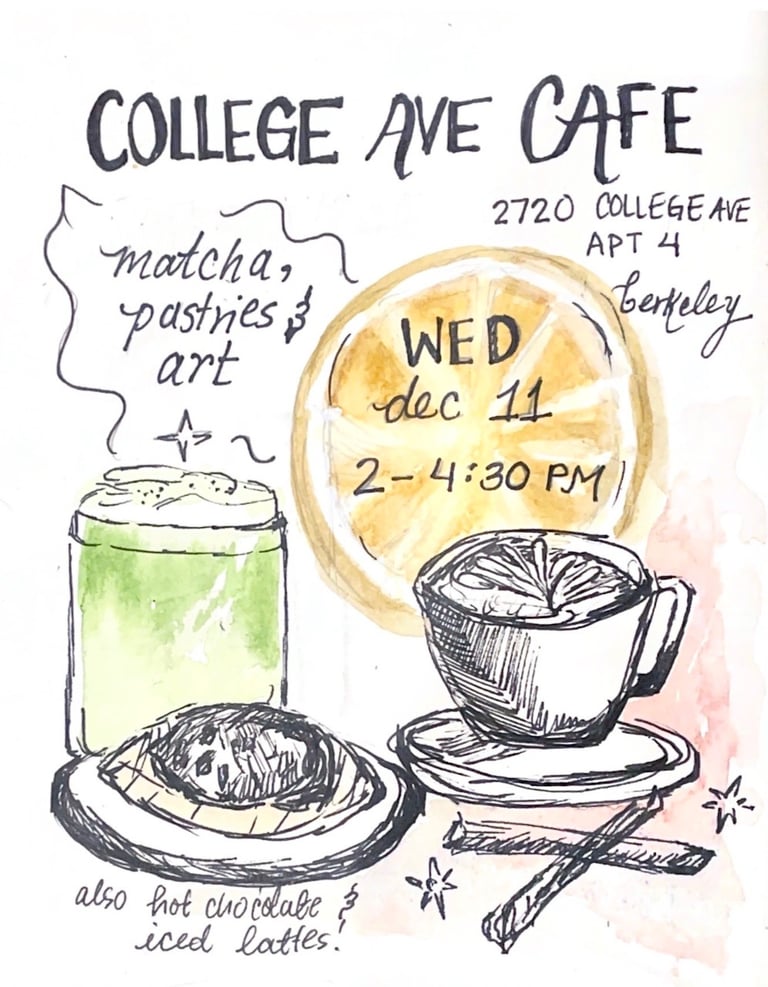 COLLEGE AVE CAFE
2720 COLLEGE AVE
APT 4
berkeley
matcha,
pastries &
art
WED
dec 11
2-4:30 PM
also hot chocolate &
iced lattes!